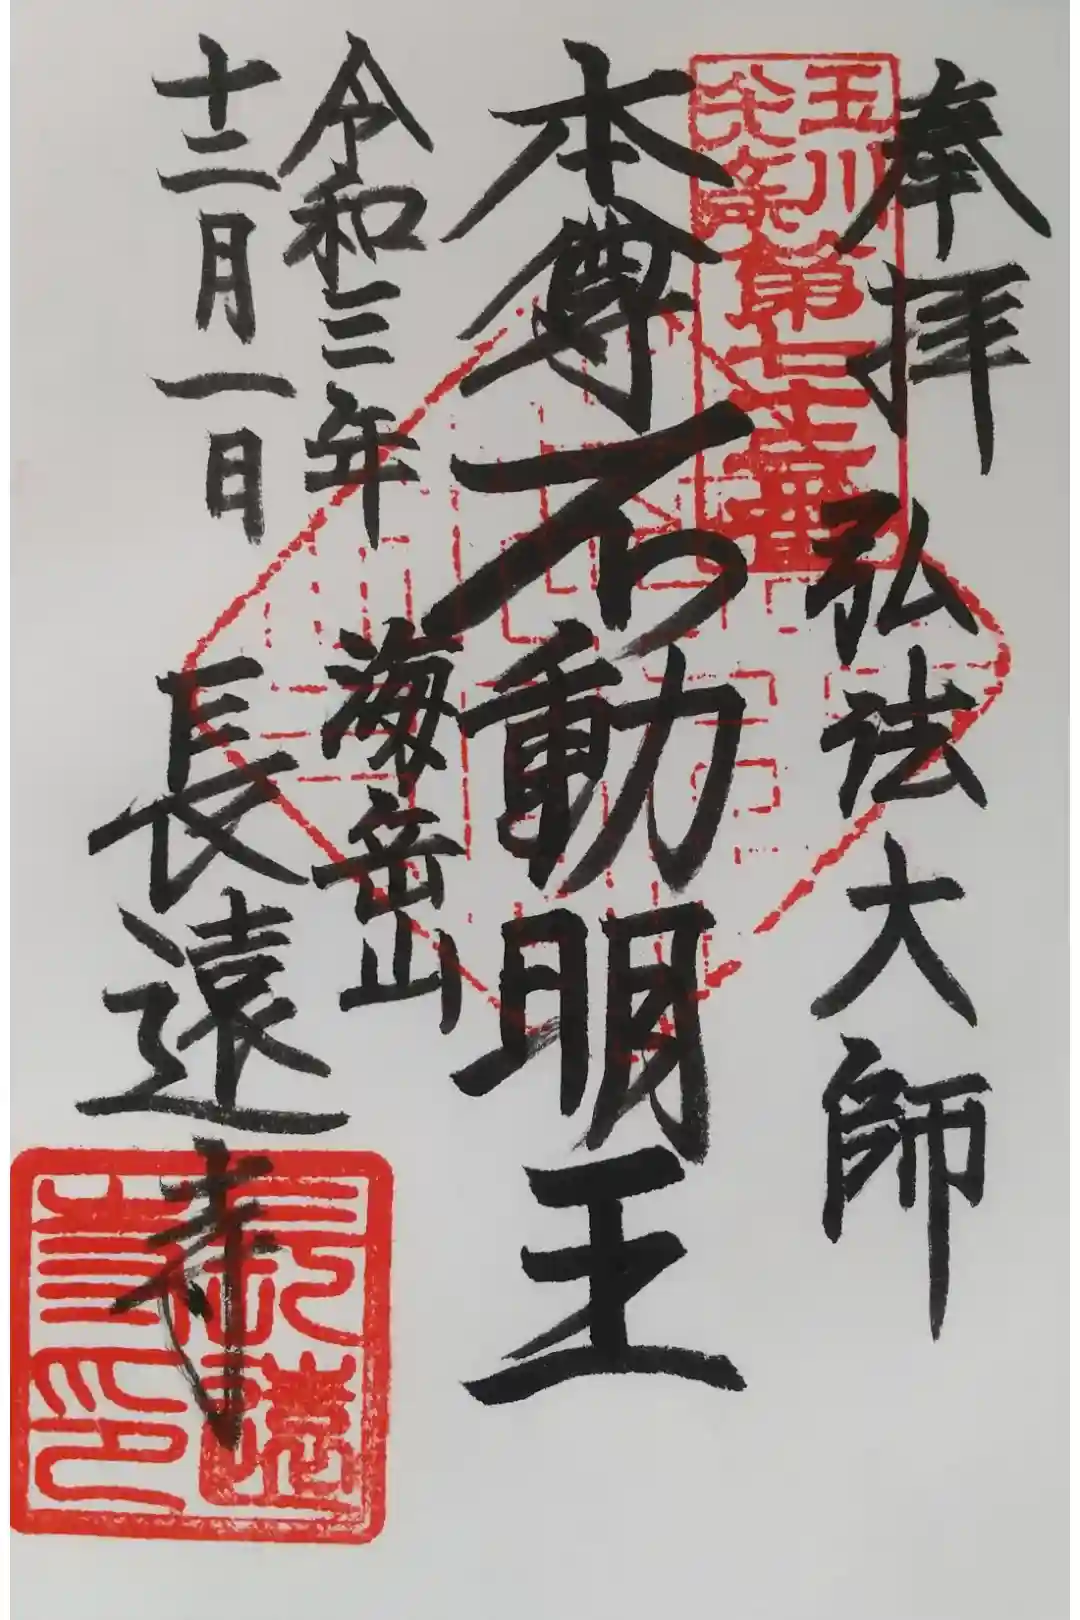 奉拝 弘法大師
玉川
第七十五番
本尊 不動明王
令和三年
十二月一日
海岳山
長遠寺
長遠
寺印